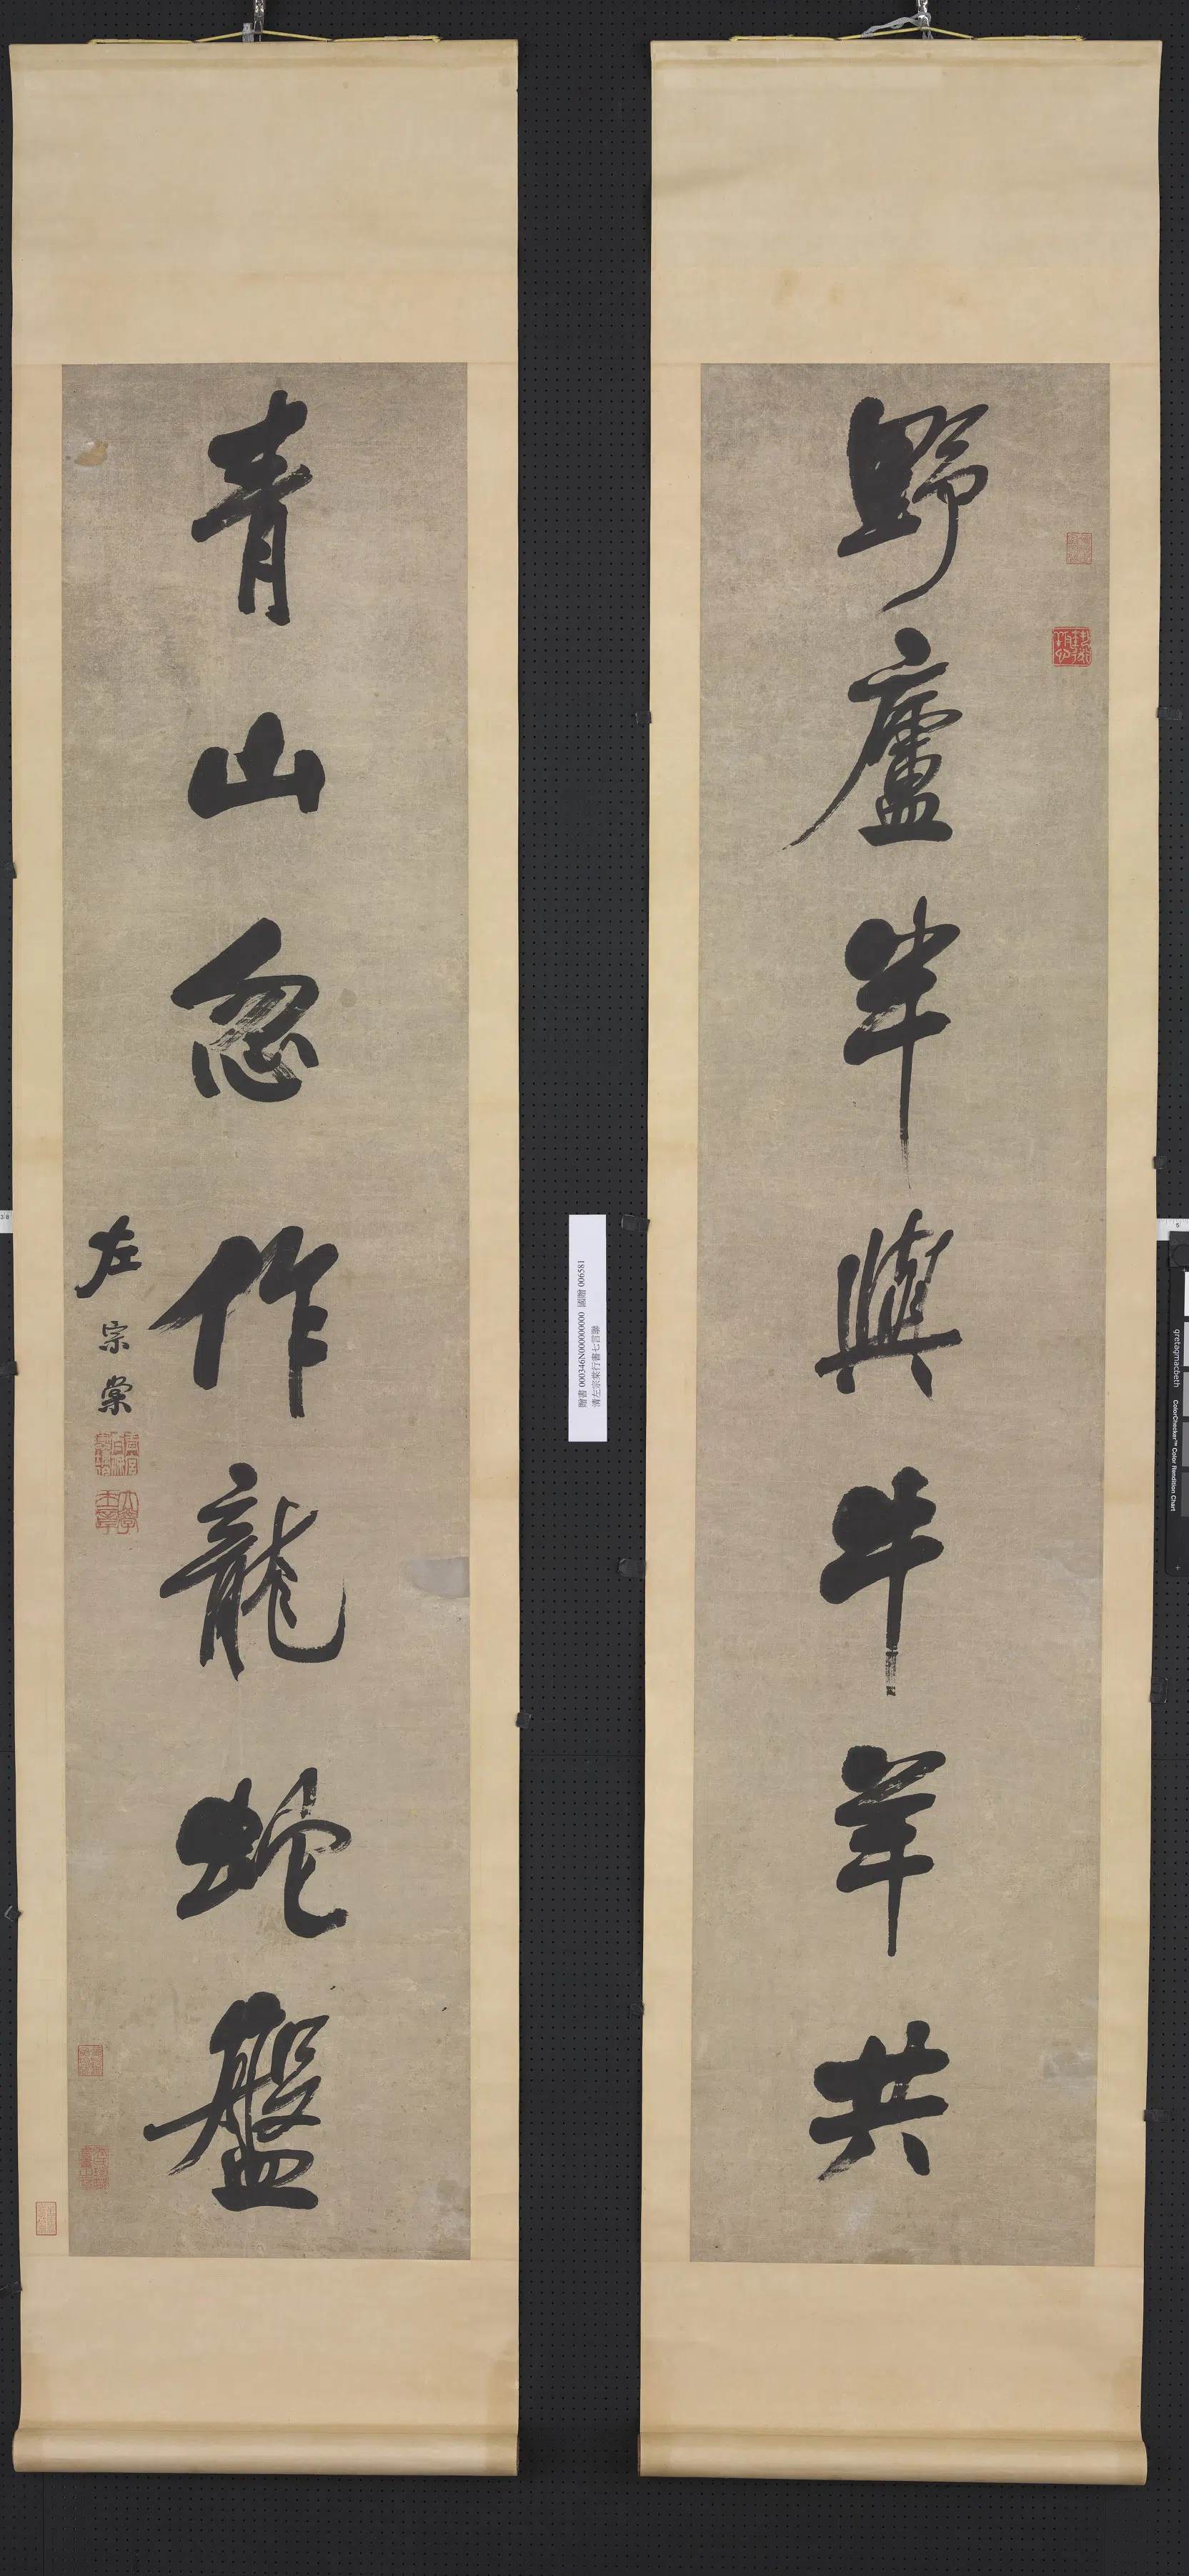 野廬半與牛羊共
青山忽作龍蛇盤
左宗棠
贈書 000346N000000000 國贈 006581
清左宗棠行書七言聯
gretagmacbeth
ColorChecker™ Color Rendition Chart